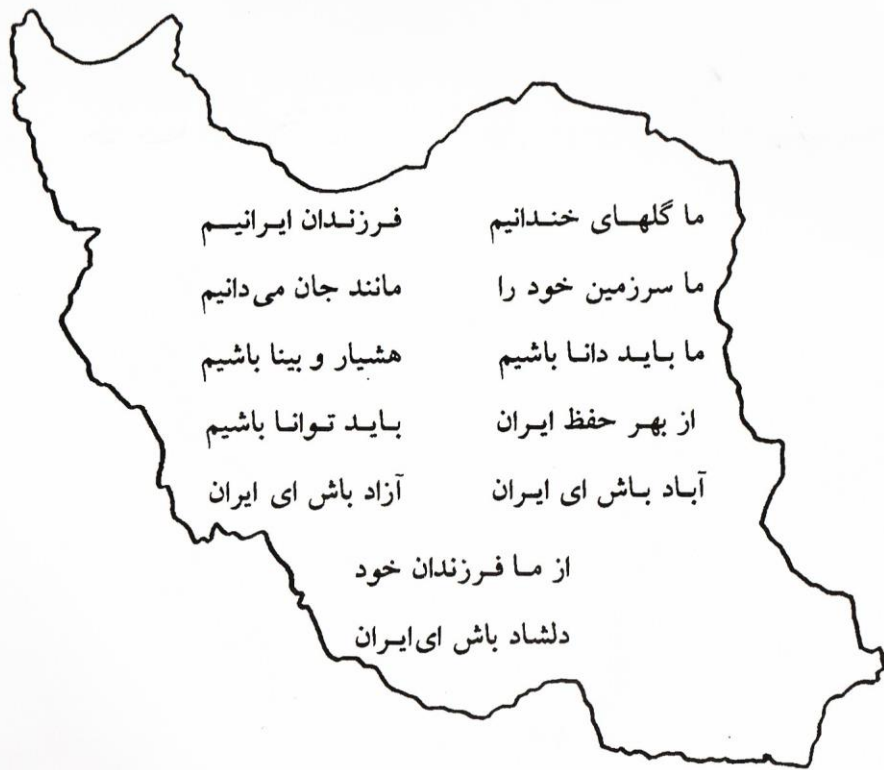 ما گلهای خندانیم فرزندان ایرانیم
ما سرزمین خود را مانند جان می‌دانیم
ما باید دانا باشیم هشیار و بینا باشیم
از بهر حفظ ایران باید توانا باشیم
آباد باش ای ایران آزاد باش ای ایران
از ما فرزندان خود
دلشاد باش ای ایران